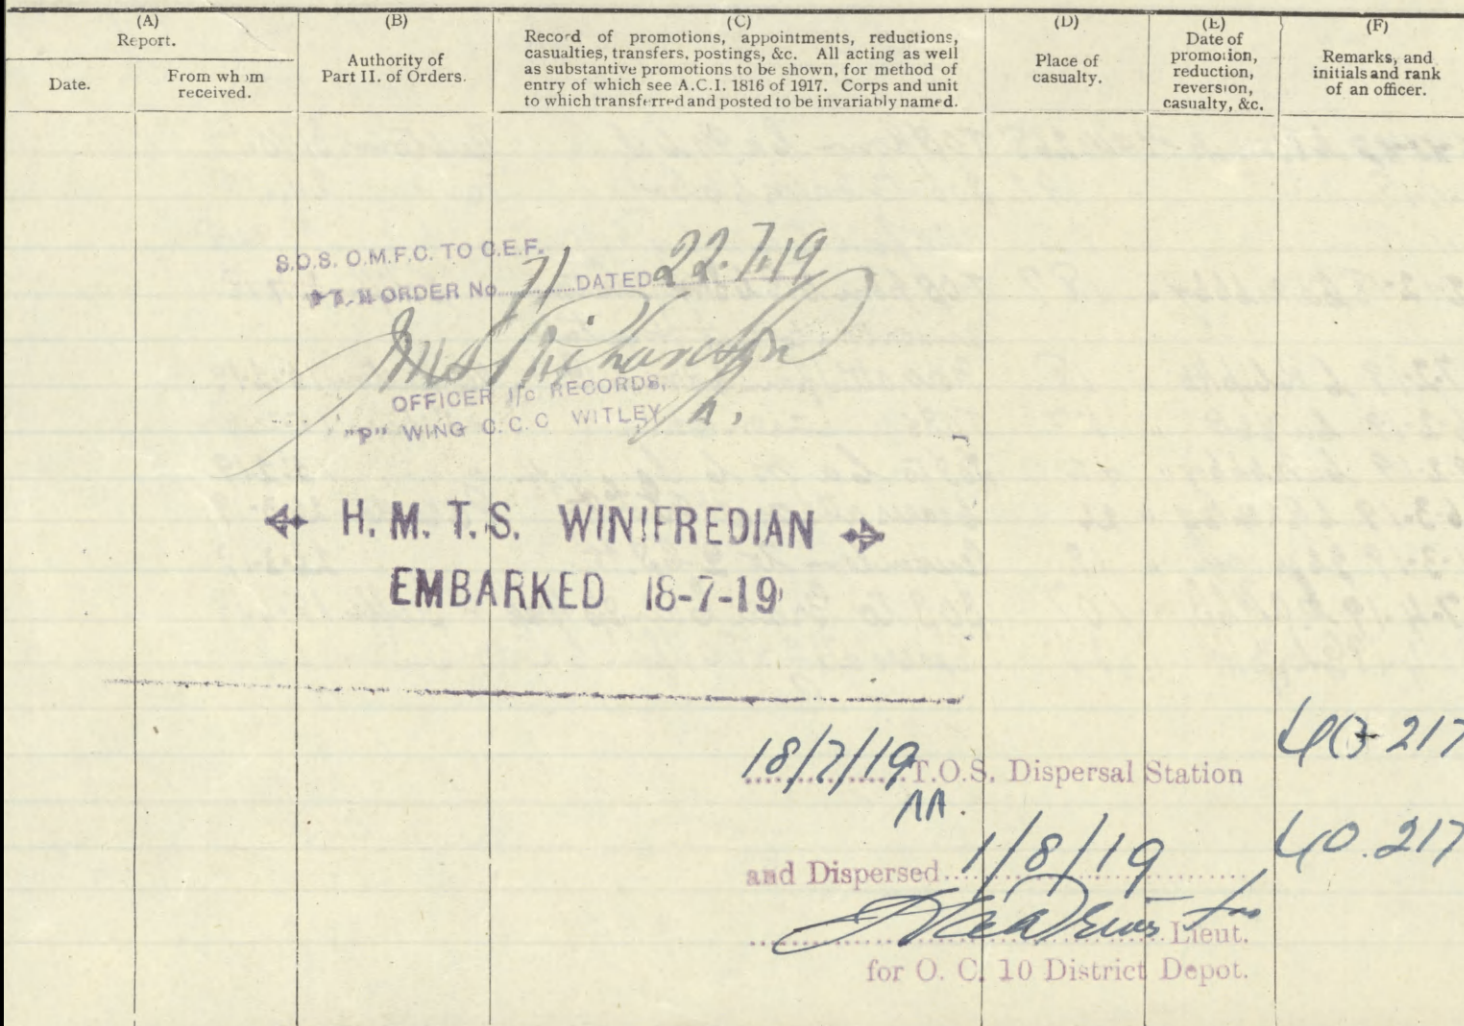 (A)
Report.
Date.
From whom received.
(B)
Authority of
Part II. of Orders.
(C)
Record of promotions, appointments, reductions,
casualties, transfers, postings, &c. All acting as well
as substantive promotions to be shown, for method of
entry of which see A.C.I. 1816 of 1917. Corps and unit
to which transferred and posted to be invariably named.
(D)
Place of
casualty.
(E)
Date of
promotion,
reduction,
reversion,
casualty, &c.
(F)
Remarks, and
initials and rank
of an officer.
S.O.S. O.M.F.C. TO C.E.F.
ORDER No 71 DATED 22.7.19
Richardson
OFFICER I/c RECORDS,
"P" WING C.C.C WITLEY
H. M. T. S. WINIFREDIAN
EMBARKED 18-7-19
18/7/19 T.O.S. Dispersal Station
and Dispersed 1/8/19
Lieut.
for O. C. 10 District Depot.
217
40.217